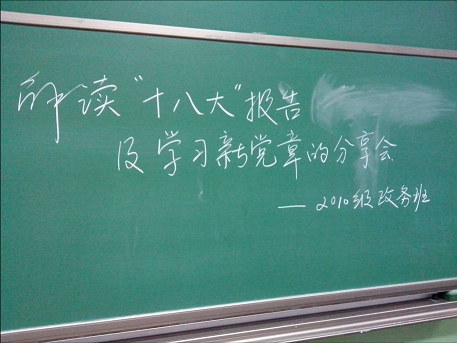 解读“十八大”报告
及学习新党章的分享会
— 2010级政务班